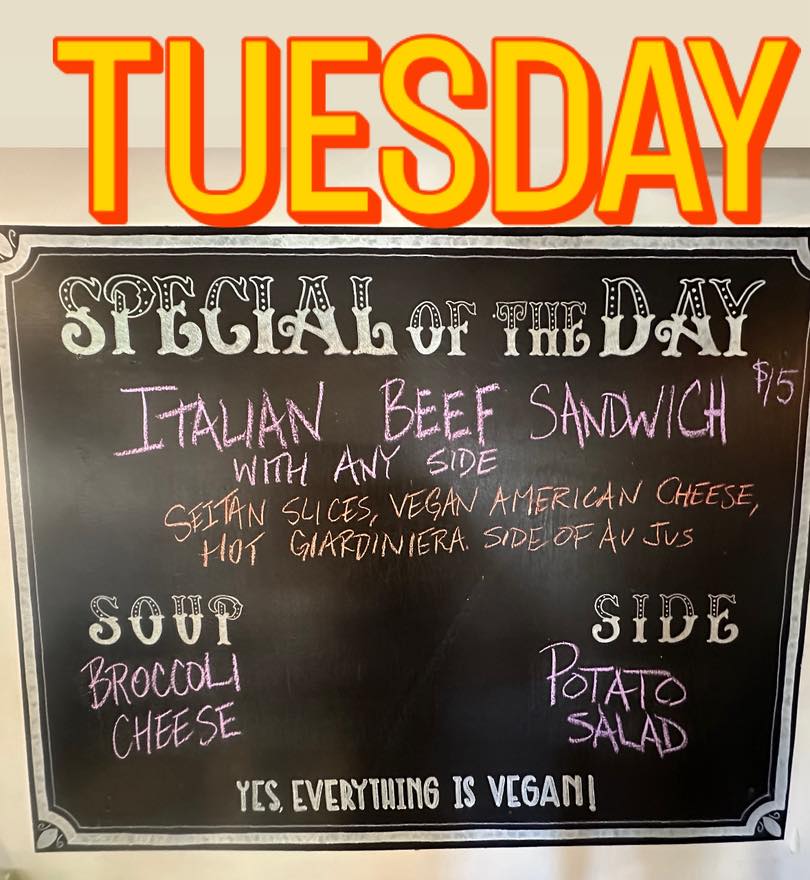 TUESDAY
SPECIAL OF THE DAY
ITALIAN BEEF SANDWICH $15
WITH ANY SIDE
SEITAN SLICES, VEGAN AMERICAN CHEESE,
HOT GIARDINIERA. SIDE OF AU JUS
SOUP
BROCCOLI
CHEESE
SIDE
POTATO
SALAD
YES, EVERYTHING IS VEGAN!